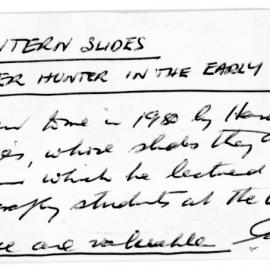 NTERN SLIDES
ER HUNTER IN THE EARLY
me in 1980 by Har
whose slides they
which he lectured
raphy students at the
are valuable